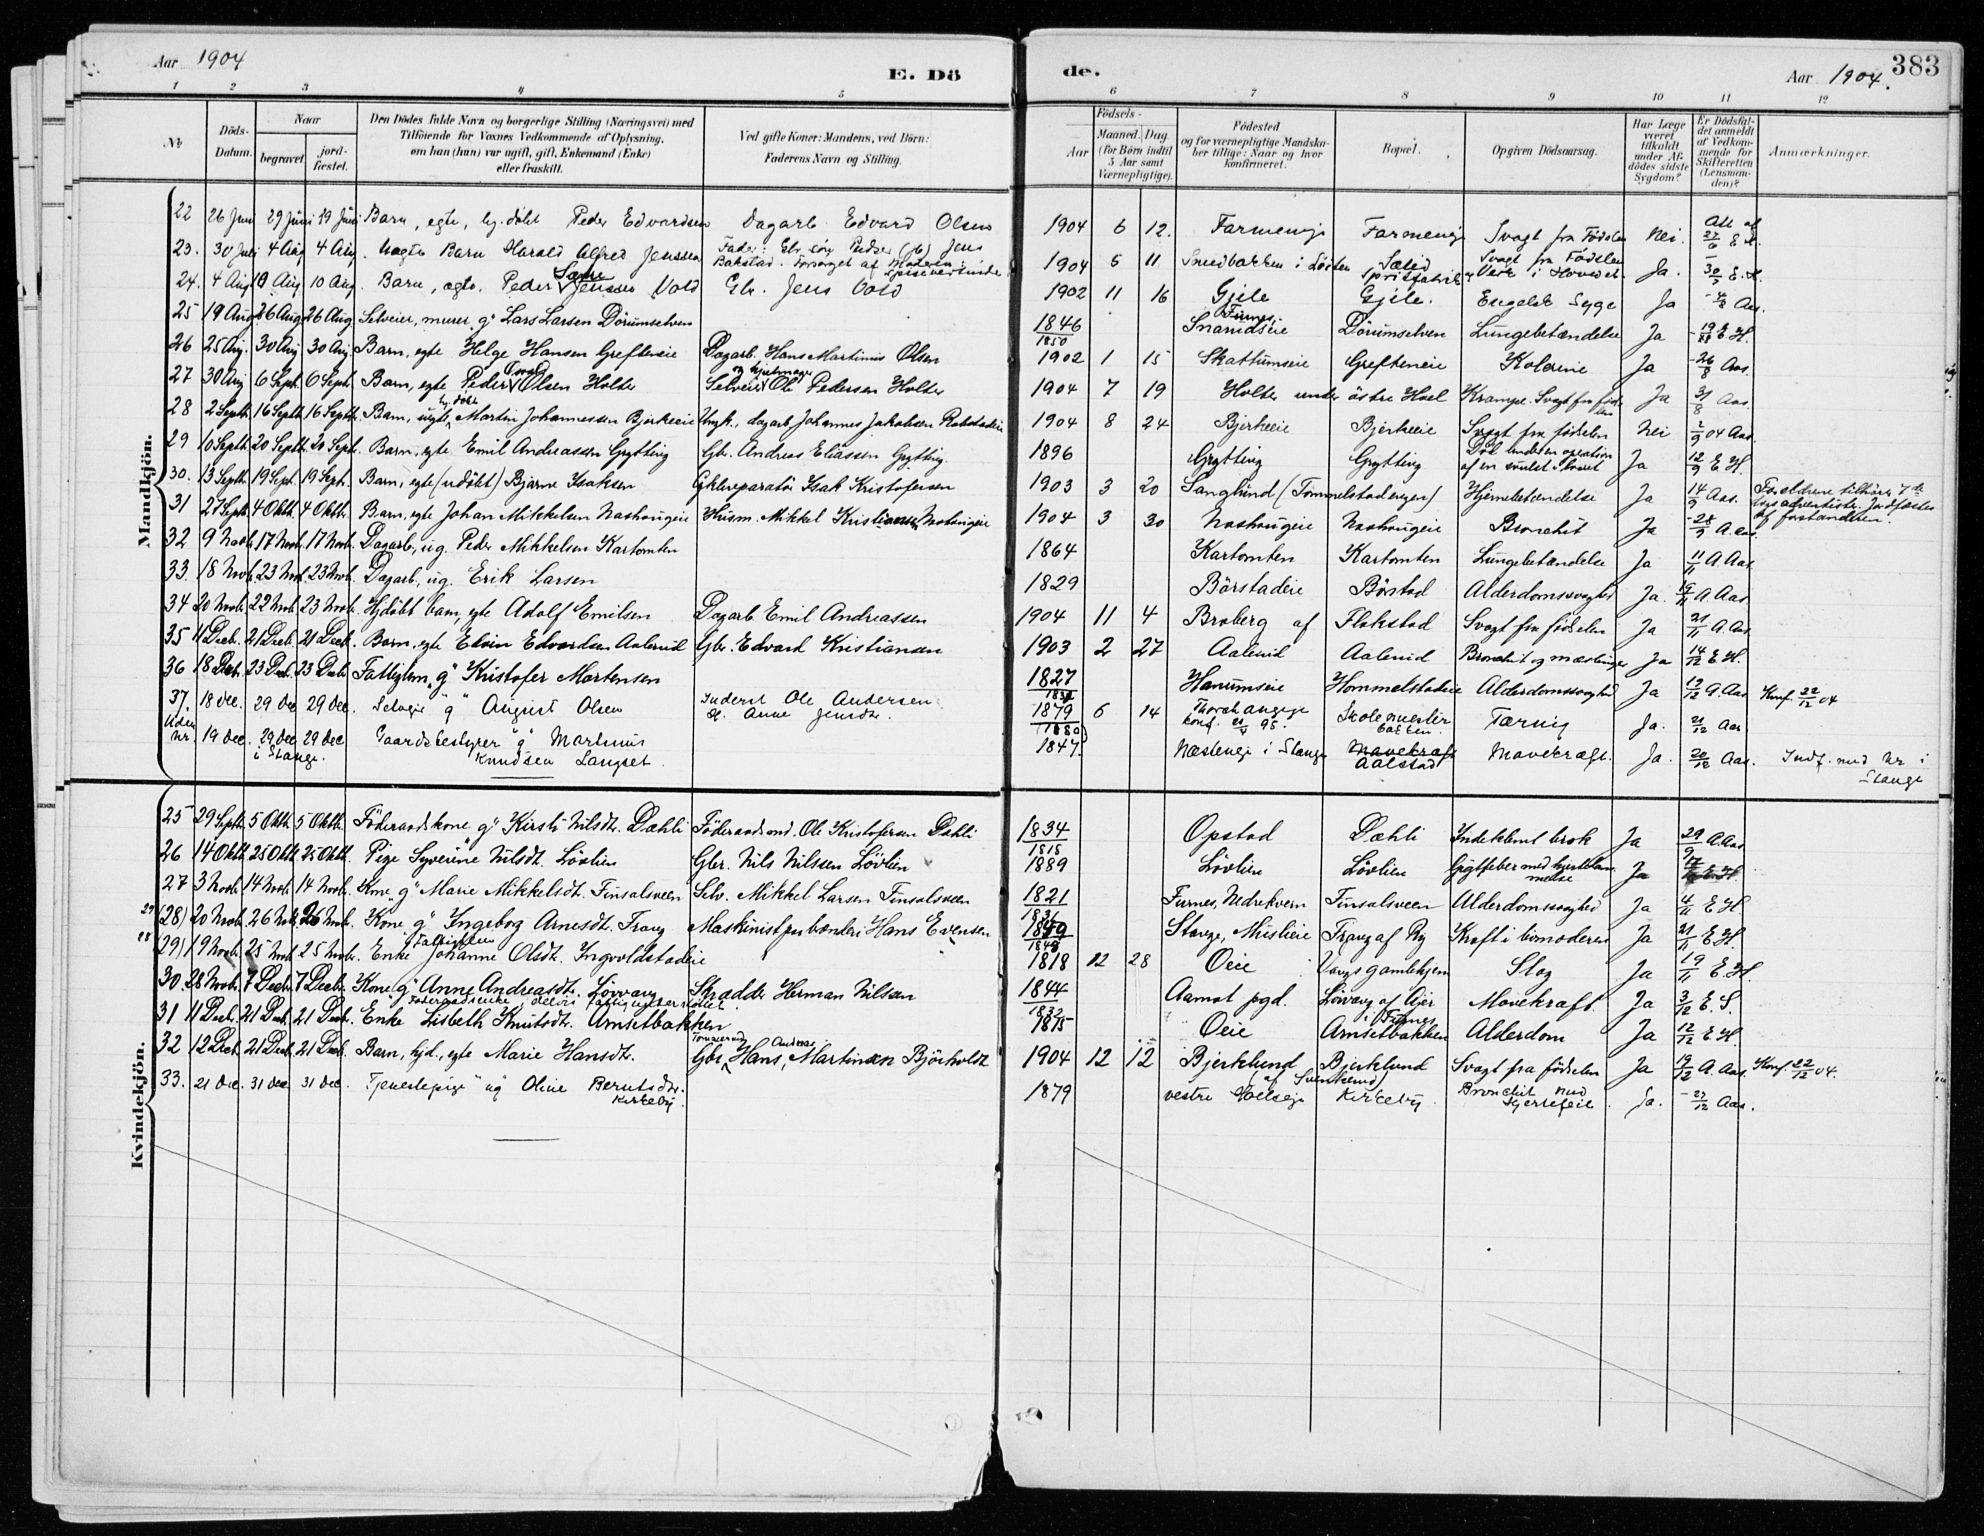 Aar 1904
E. Dö
de.
Aar 1904.
383
1 2 3 4 5 6 7 8 9 10 11 12
No
Döds-Datum.
Naar
begravet
jordfæstet.
Den Dödes fulde Navn og borgerlige Stilling (Næringsvei) med
Tilföiende for Voxnes Vedkommende af Oplysning,
om han (hun) var ugift, gift, Enkemand (Enke)
eller fraskilt.
Ved gifte Koner: Mandens, ved Börn:
Faderens Navn og Stilling.
Födsels-
Aar
Maaned. Dag
(for Börn indtil 5 Aar samt Værnepligtige).
Födested
og for værnepligtige Mandskaber tillige: Naar og hvor konfirmeret.
Bopæl.
Opgiven Dödsaarsag.
Har Læge været tilkaldt under Afdödes sidste Sygdom?
Er Dödsfaldet anmeldt af Vedkommende for Skifteretten (Lensmanden)?
Anmærkninger.
Mandkjön.
22 26 Juni 29 Juni 19 Juni Barn, egte, hj.döbt Peder Edvardsen Dagarb. Edvard Olsen 1904 6 12. Farmeneje Farmeneje Svagt fra Födslen Nei. Att af 27/6 E H.
23. 30 Juli 4 Aug 4 Aug. Uægte Barn Harald Alfred Jenssen Fader: Jens Bakstad. Forsörget af Moderen: 1904 5 11 Smedbakken i Löiten Sælid Spritfabrik Svagt fra Födslen. Værk i Hovedet. Ja. 30/7 E.H.
24. 4 Aug 10 Aug 10 Aug. Barn, ægte, Peder Jenssen Vold Gbr. Jens Vold 1902 11 16 Gjele Gjele. Engelsk Syge Ja Aas.
25 19 Aug 26 Aug 26 Aug Selveier, murer "g" Lars Larsen Dörumselven 1846 1850 Furnes Snarudseie Dörumselven Lungebetændelse Ja 19/8 E H.
26 25 Aug. 30 Aug 30 Aug Barn, egte Helge Hansen Grefteneie Dagarb. Hans Martinius Olsen 1902 1 15 Skattumseie Grefteneie Kolerine Ja 26/8 Aas.
27 30 Aug 6 Sept. 6 Sept. Barn, egte Peder Olsen Holte Selveier og hjulmager Ole Pedersen Holter 1904 7 19 Holter under östre Hoel Krampe. Svagt fra födslen Ja 31/8 Aas.
28 2 Septb. 16 Septb. 16 Septb. Barn, uegte, hj. döbt Martin Johannessen Bjerkeeie Ungk., dagarb. Johannes Jakobsen 1904 8 24 Bjerkeeie Bjerkeeie Svagt fra födselen Nei 2/9 04 Aas.
29 10 Septb. 20 Septb. 20 Sept. Barn, egte Emil Andreassen Grytting Gbr. Andreas Eliassen Grytting 1896 Grytting Grytting Död under en operation af en svulst i halset Ja 12/9 E H.
30. 13 Septb. 19 Sept. 19 Sept. Barn, egte (udöbt) Bjarne Isaksen Cyklereparatör Isak Kristofersen 1903 3 20 Sanglund (Tommelstadengen) Hjernebetændelse Ja 14/9 Aas. Forældrene tilhörer 7de dagsadventister. Jordfæstet af forstanderen.
31 27 Septb. 4 Oktb. 4 Oktb. Barn, egte Johan Mikkelsen Nashougeie Husm. Mikkel Kristiansen Nashougeie 1904 3 30 Nashougeie Nashougeie Bronchit Ja 28/9 A. Aas
32 9 Novb. 17 Novb. 17 Novb. Dagarb., ug. Peder Mikkelsen Kartomten 1864 Kartomten Kartomten Lungebetændelse Ja 11/11 A Aas
33. 18 Novb. 23 Novb. 23 Novb. Dagarb., ug. Erik Larsen 1829 Börstadeie Börstad Alderdomssvaghed Ja. 19/11 A. Aas
34 20 Novb. 22 Novb. 23 Novb. Hjdöbt barn, egte Adolf Emilsen Dagarb. Emil Andreassen 1904 11 4 Broberg af Flakstad Svagt fra födselen Ja 21/11 A. Aas
35 11 Decb. 21 Decb. 21 Decb. Barn, egte Elvin Edvardsen Aalerud Gbr. Edvard Kristiansen 1903 2 27 Aalerud Aalerud Bronchit og mæslinger Ja 14/12 E H.
36 18 Decb. 23 Decb. 23 Decb. Fattiglem "g" Kristofer Mortensen 1827 Hanumseie Hommelstadeie Alderdomssvaghed Ja 19/12 A. Aas Konf. 22/12 04
37. 18 dec. 29 Dec 29 dec. "g" August Olsen Inderst Ole Andersen & Anne Jensdr. 1879 6 14 Thorshaugeje konf. 95. Skolemester bakken. Tæring Ja. 21/12 Aas
Uden nr. 19 dec. 29 dec i Stange. 29 dec Gaardsbestyrer "g" Martinus Knudsen Langset. (1880) 1847. Næsteneje i Stange Mavekræft Aalstad Mavekræft. Ja. 20/12 Aas. Indf. med Nr i Stange
Kvindekjön.
25 29 Septb. 5 Oktb. 5 Oktb. Föderaadskone "g" Kirsti Nilsdt. Dæhli Föderaadsmd. Ole Kristofersen Dæhli 1834 Opstad Dæhli Indeklemt brok Ja 29/9 A. Aas
26 14 Oktb. 25 Oktb. 25 Oktb. Pige Syverine Nilsdt. Lövlien Gbr. Nils Nilssen Lövlien 1889 Lövlien Lövlien Gigtfeber med hjertelammelse Ja
27 3 Novb. 14 Novb. 14 Novb. Kone "g" Marie Mikkelsdt. Finsalsveen Selv. Mikkel Larsen Finsalsveen 1821 Furnes, Nedrekvern Finsalsveen Alderdomssvaghed Ja 4/11 E H.
29 (28) 20 Novb. 26 Novb. 26 Novb. Kone "g" Ingebog Arnesdt. Frang Maskinist paa bænderi Hans Evensen 1849 Stange, Mislieie Frang af Ry Kræft i livmoderen Ja 21/11 E H.
28 29) 19 Novb. 25 Novb. 25 Novb. Enke Fattiglem Johanne Olsdt. Ingvoldstadeie 1818 12 28 Oeie Vangs gamlehjem Slag Ja 19/11 E. H.
30. 28 Novb. 7 Decb. 7 Decb. Kone "g" Anne Andreasdt. Lövvang Skrædder Herman Nilsen 1844 Aamot pgd. Lövvang af Ajer Mavekræft. Ja 3/12 E. S.
31 11 Decb. 21 Decb. 21 Decb. Föderaadsenke, delvis fattigunderstöttet Enke Lisbeth Knutsdt. Amsetbakken 1832 1815 Oeie i Furnes Amsetbakken Alderdom Ja 12/12 E H.
32 12 Decb. 21 Decb. 21 Decb. Barn, hjd., egte Marie Hansdt. Gbr. Tömmermd. Hans Andreas Martinsen Björkelund 1904 12 12 Bjerklund Bjerklund af Svenkerud Svagt fra födselen Ja 19/12 A. Aas. Konf. 22/12 04.
33. 21 dec. 31 dec 31 dec. Tjenestepige "ug" Oline Berntsdtr. Kirkeby. 1879 vestre Hoelseje Kirkeby. Bronchit med Hjertefeil. Ja. 27/12 Aas.